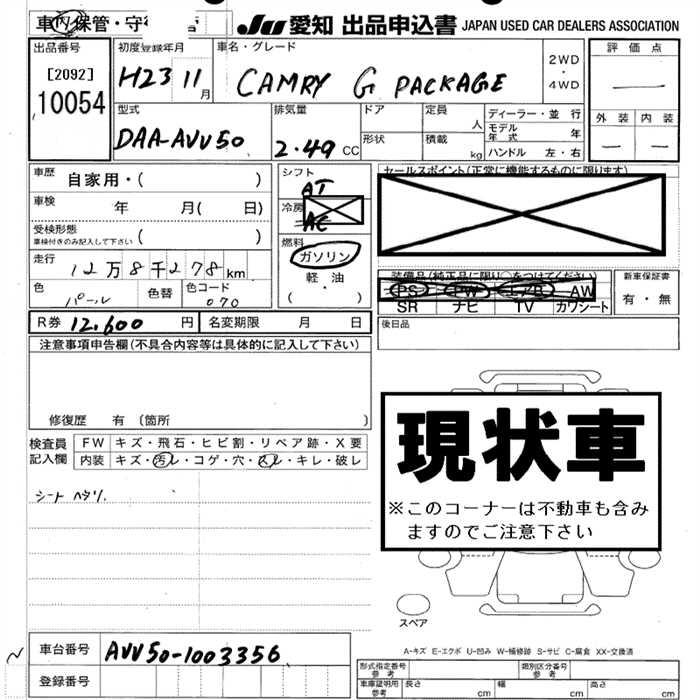 車内保管・守
JU 愛知 出品申込書 JAPAN USED CAR DEALERS ASSOCIATION
出品番号
[2092]
10054
初度登録年月
H23 11月
車名・グレード
CAMRY G PACKAGE
2WD
・
4WD
評価点
—
外装 内装
— —
型式
DAA-AVV50
排気量
2.49 CC
ドア
形状
定員
人
積載
kg
ディーラー・並行
モデル年式 年
ハンドル 左・右
車歴 自家用・( )
車検 年 月( 日)
受検形態
車検付きのみ記入して下さい ( )
走行 12万8千278km
色 パール
色替
色コード 070
シフト
AT
冷房
AC
燃料
ガソリン
軽・油
( ・ )
セールスポイント(正常に機能するものに限ります)
装備品(純正品に限り○をつけてください)
PS PW AW
SR ナビ TV カワシート
新車保証書
有・無
後日品
R券 12,600 円
名変期限 月 日
注意事項申告欄(不具合内容等は具体的に記入して下さい)
修復歴 有 (箇所 )
検査員
記入欄
FW キズ・飛石・ヒビ割・リペア跡・X要
内装 キズ・汚レ・コゲ・穴・スレ・キレ・破レ
シート ヘタリ
現状車
※このコーナーは不動車も含み
ますのでご注意下さい
スペア
A-キズ E-エクボ U-凹み W-補修跡 S-サビ C-腐食 XX-交換済
車台番号 AVV50-1003356
登録番号
形式指定番号
参考
類別区分番号
参考
車庫証明用
参考
長さ cm 幅 cm 高さ cm